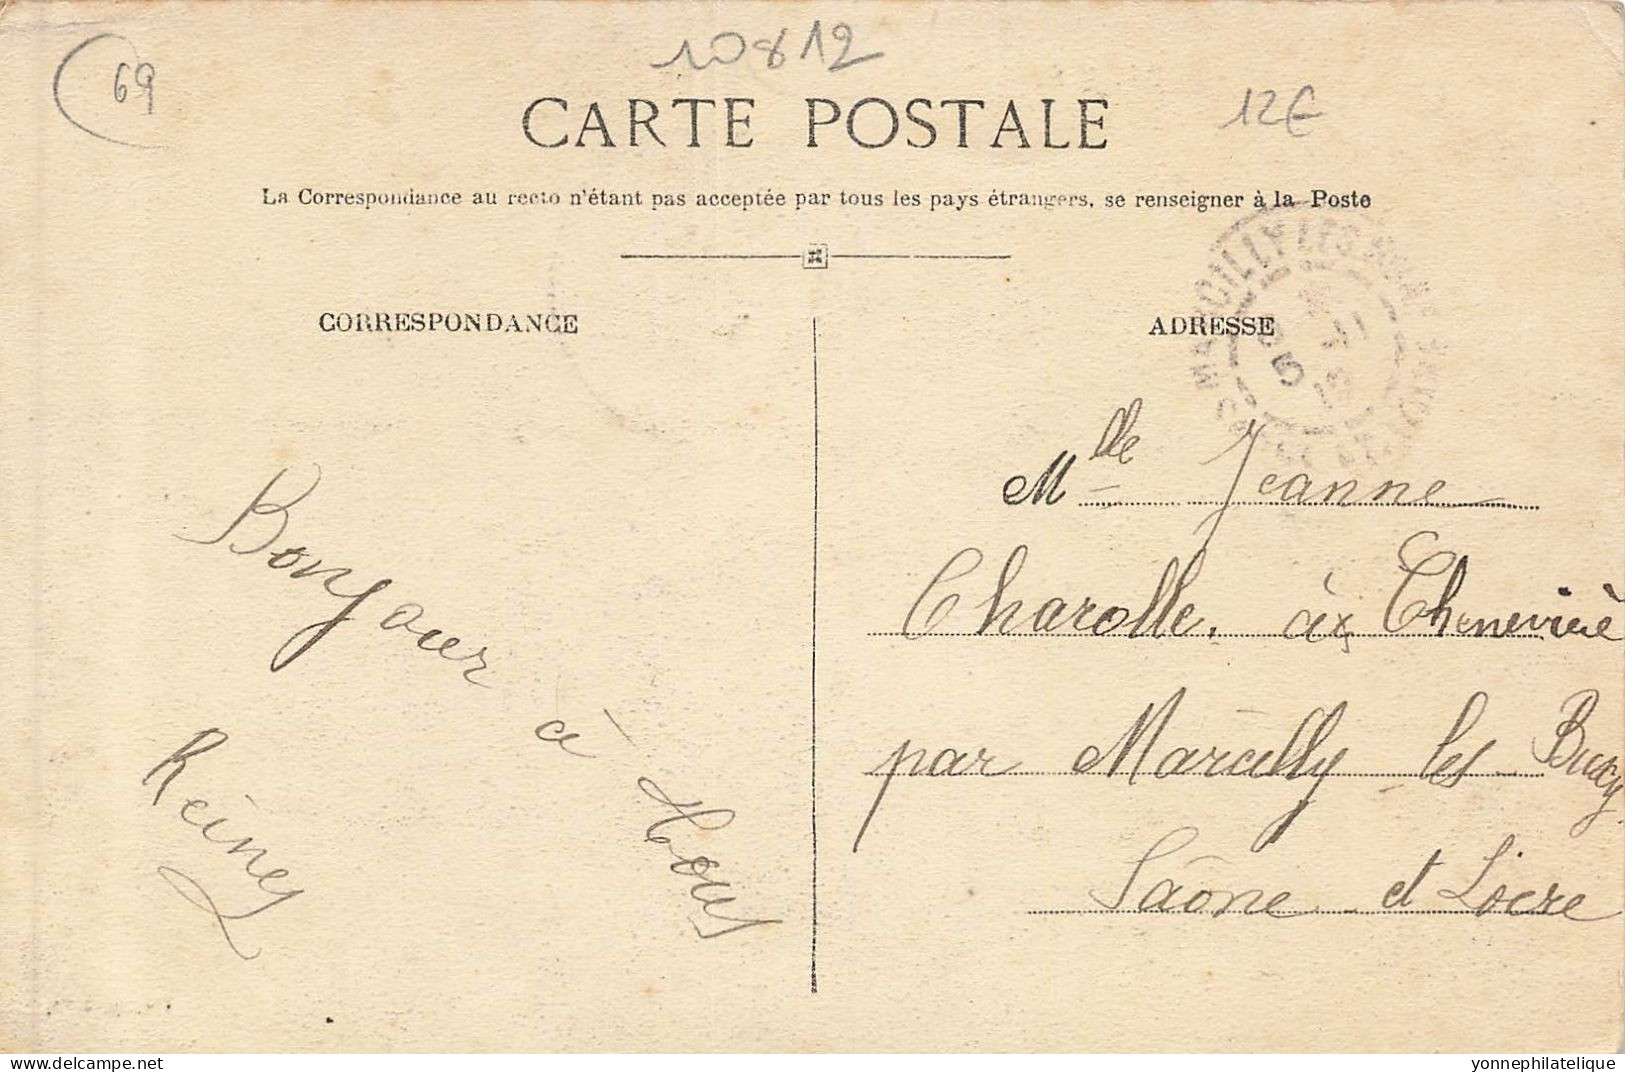 69
10812
12€
CARTE POSTALE
La Correspondance au recto n'étant pas acceptée par tous les pays étrangers, se renseigner à la Poste
CORRESPONDANCE
ADRESSE
MARCILLY LES
5
Bonjour
à
Reiney
Mlle Jeanne
Charolle. à Thenevière
par Marcilly les Buxy
Saône et Loire
delcampe.net
yonnephilatelique